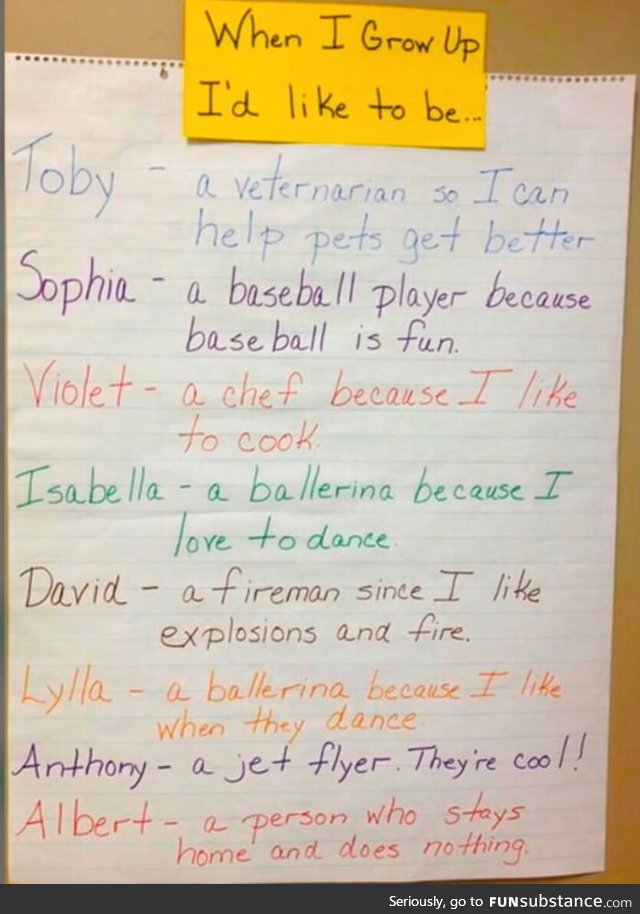 When I Grow Up
I'd like to be...
Toby - a veternarian so I can
help pets get better
Sophia - a baseball player because
baseball is fun.
Violet - a chef because I like
to cook.
Isabella - a ballerina because I
love to dance.
David - a fireman since I like
explosions and fire.
Lylla - a ballerina because I like
when they dance.
Anthony - a jet flyer. They're cool!
Albert - a person who stays
home and does nothing.
Seriously, go to FUNsubstance.com